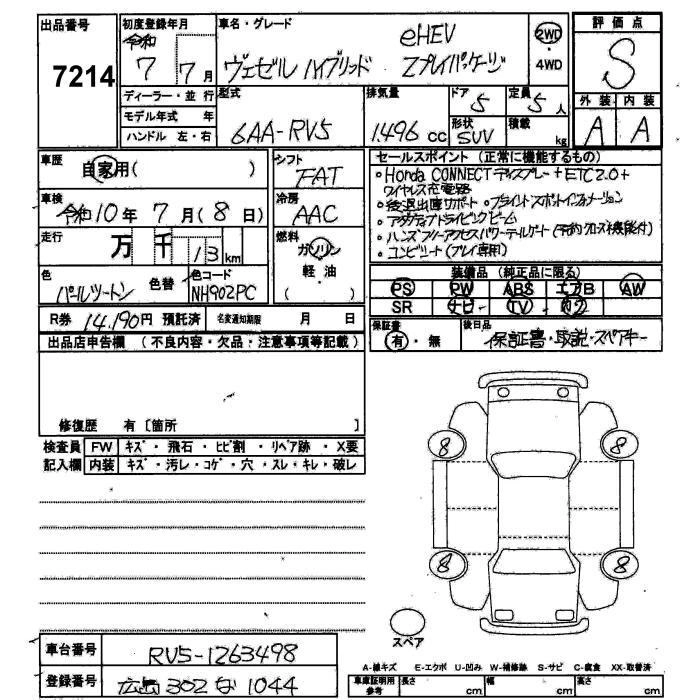 出品番号
7214
初度登録年月
令和
7 7月
車名・グレード
eHEV
ヴェゼル ハイブリッド Zプレイパッケージ
2WD
・4WD
評価点
S
外装 内装
A A
ディーラー・並行
モデル年式 年
ハンドル 左・右
型式
6AA-RV5
排気量
1.496 cc
ドア
5
定員
5人
形状
SUV
積載
kg
車歴
自家用( )
シフト
FAT
車検
令和10年7月(8日)
冷房
AAC
走行
万 千 13 km
燃料
ガソリン
軽・油
( )
色
パールツートン
色替
色コード
NH902PC
セールスポイント (正常に機能するもの)
◦Honda CONNECTディスプレー+ETC2.0+
ワイヤレス充電器
◦後退出庫サポート ◦ブラインドスポットインフォメーション
◦アダプティブドライビングビーム
◦ハンズフリーアクセスパワーテールゲート(予約クローズ機能付)
◦コンビシート(プレイ専用)
装備品 (純正品に限る)
PS PW ABS エアB AW
SR ナビ TV カワ
R券 14.190円 預託済
名変通知期限 月 日
保証書
有・無
後日品
保証書・取説・スペアキー
出品店申告欄 (不良内容・欠品・注意事項等記載)
修復歴 有〔箇所 〕
検査員
記入欄
FW キズ・飛石・ヒビ割・リペア跡・X要
内装 キズ・汚レ・コゲ・穴・スレ・キレ・破レ
8 8
8 8
スペア
車台番号
RV5-1263498
登録番号
広島 302 な 1044
A-線キズ E-エクボ U-凹み W-補修跡 S-サビ C-腐食 XX-取替済
車庫証明用
参考
長さ cm
幅 cm
高さ cm